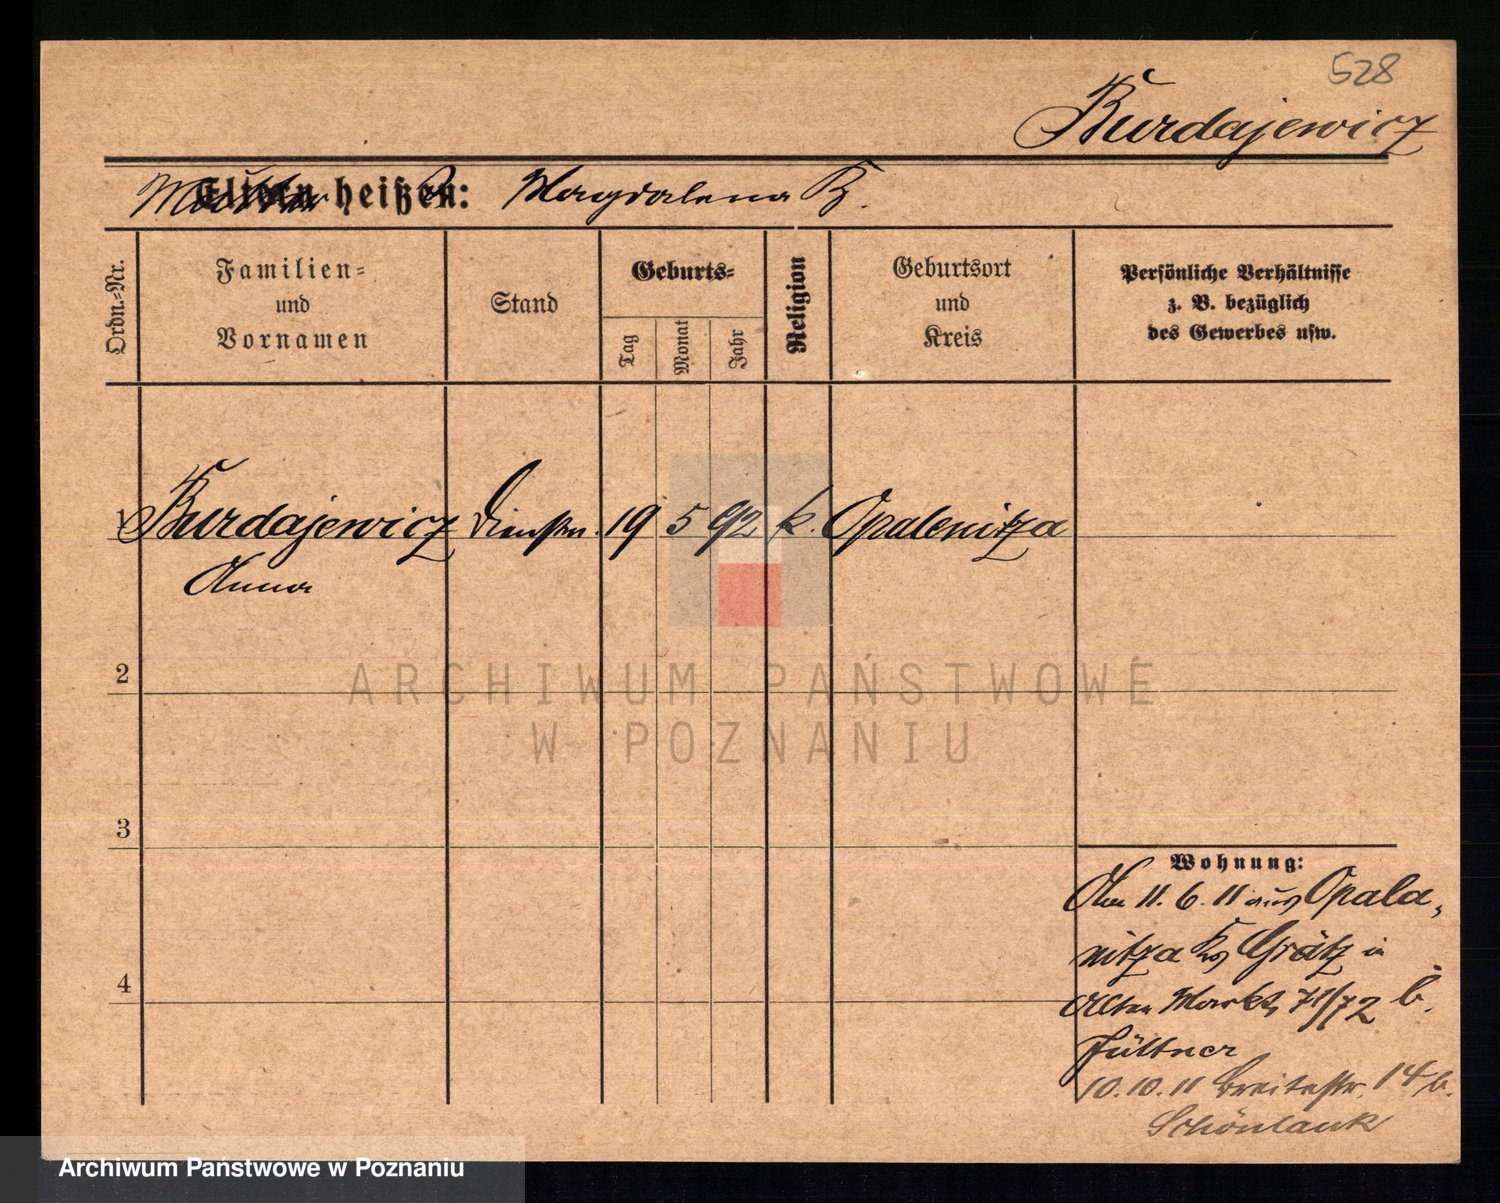 528
Burdajewicz
Eltern heißen: Magdalena B.
Ordn.-Nr.
Familien-
und
Vornamen
Stand
Geburts-
Tag
Monat
Jahr
Religion
Geburtsort
und
Kreis
Persönliche Verhältnisse
z. B. bezüglich
des Gewerbes usw.
1 Burdajewicz Dienstm. 19 5 92 k. Opalenitza
Anna
2
3
4
Wohnung:
Am 11. 6. 11 aus Opala-
nitza Grätz in
Alten Markt 71/72 b.
10.10.11 Breitestr. 14 b.
Schönlank
ARCHIWUM PAŃSTWOWE
W POZNANIU
Archiwum Państwowe w Poznaniu